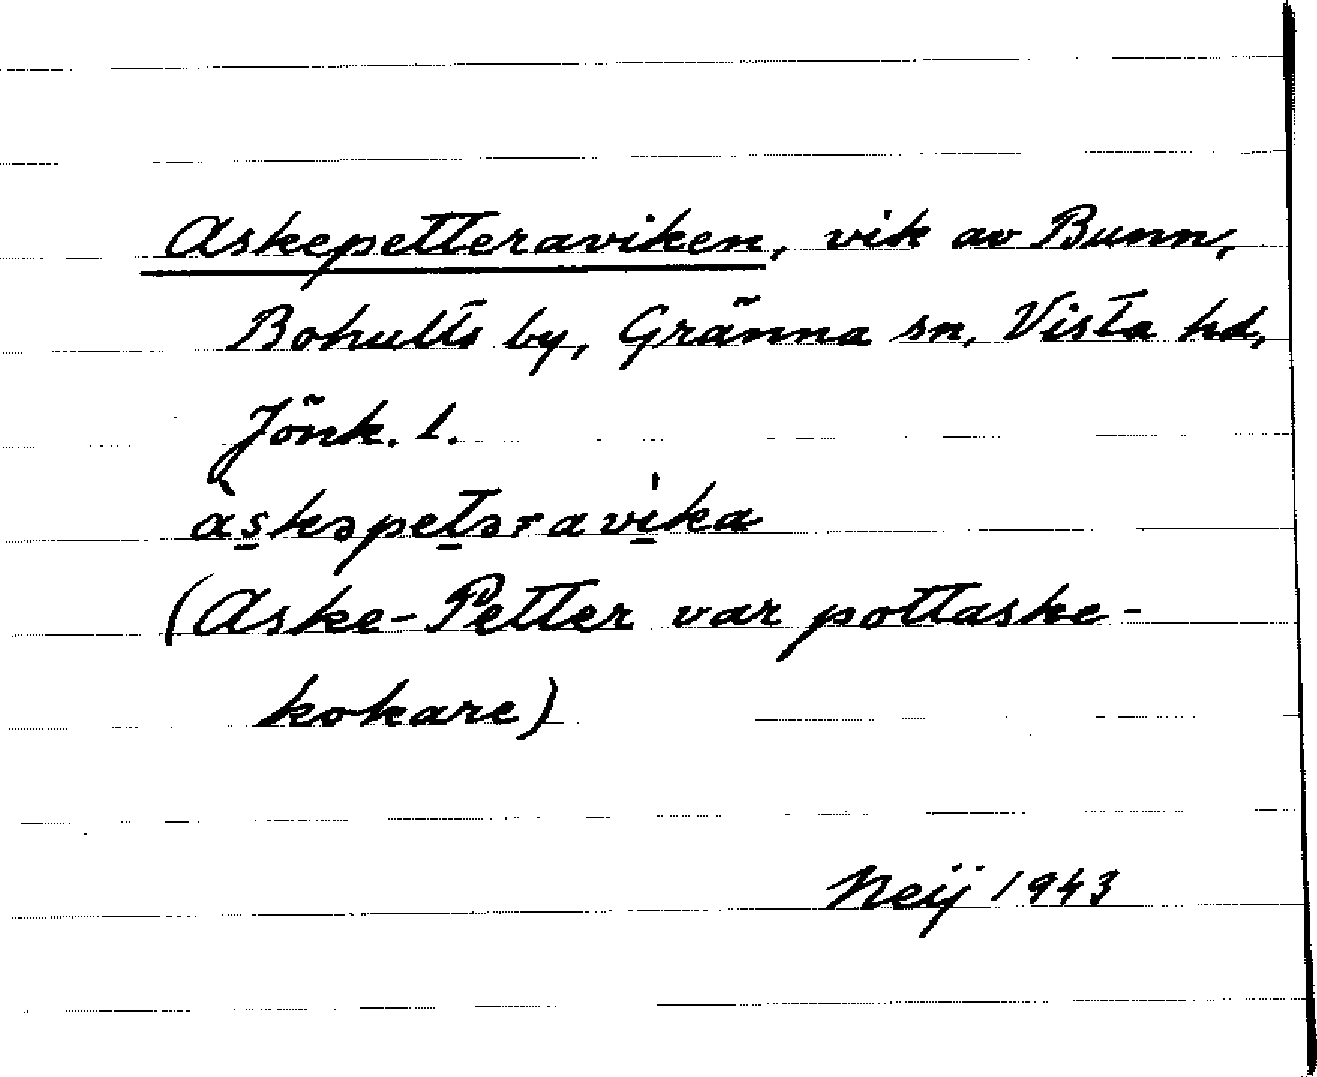 Askepetteraviken, vik av Bunn,
Bohults by, Gränna sn, Vista hd,
Jönk. l.
àskəpetəravi̍ka
(Aske-Petter var pottaske-
kokare)
Neij 1943